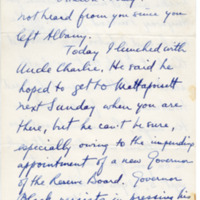 not heard from you since you
left Albany.
Today I lunched with
Uncle Charlie. He said he
hoped to get to Mattapoisett
next Sunday when you are
there, but he can't be sure,
especially owing to the impending
appointment of a new Governor
of the Reserve Board. Governor
Black persists in pressing his